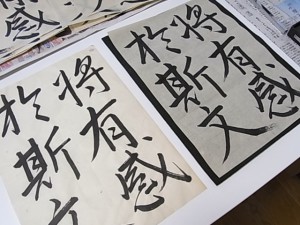 将有感
於斯文
将有感
於斯文